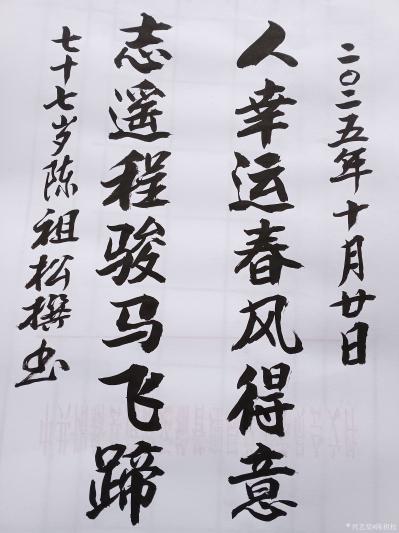 二〇二五年十月廿日
人幸运春风得意
志遥程骏马飞蹄
七十七岁陈祖松撰书